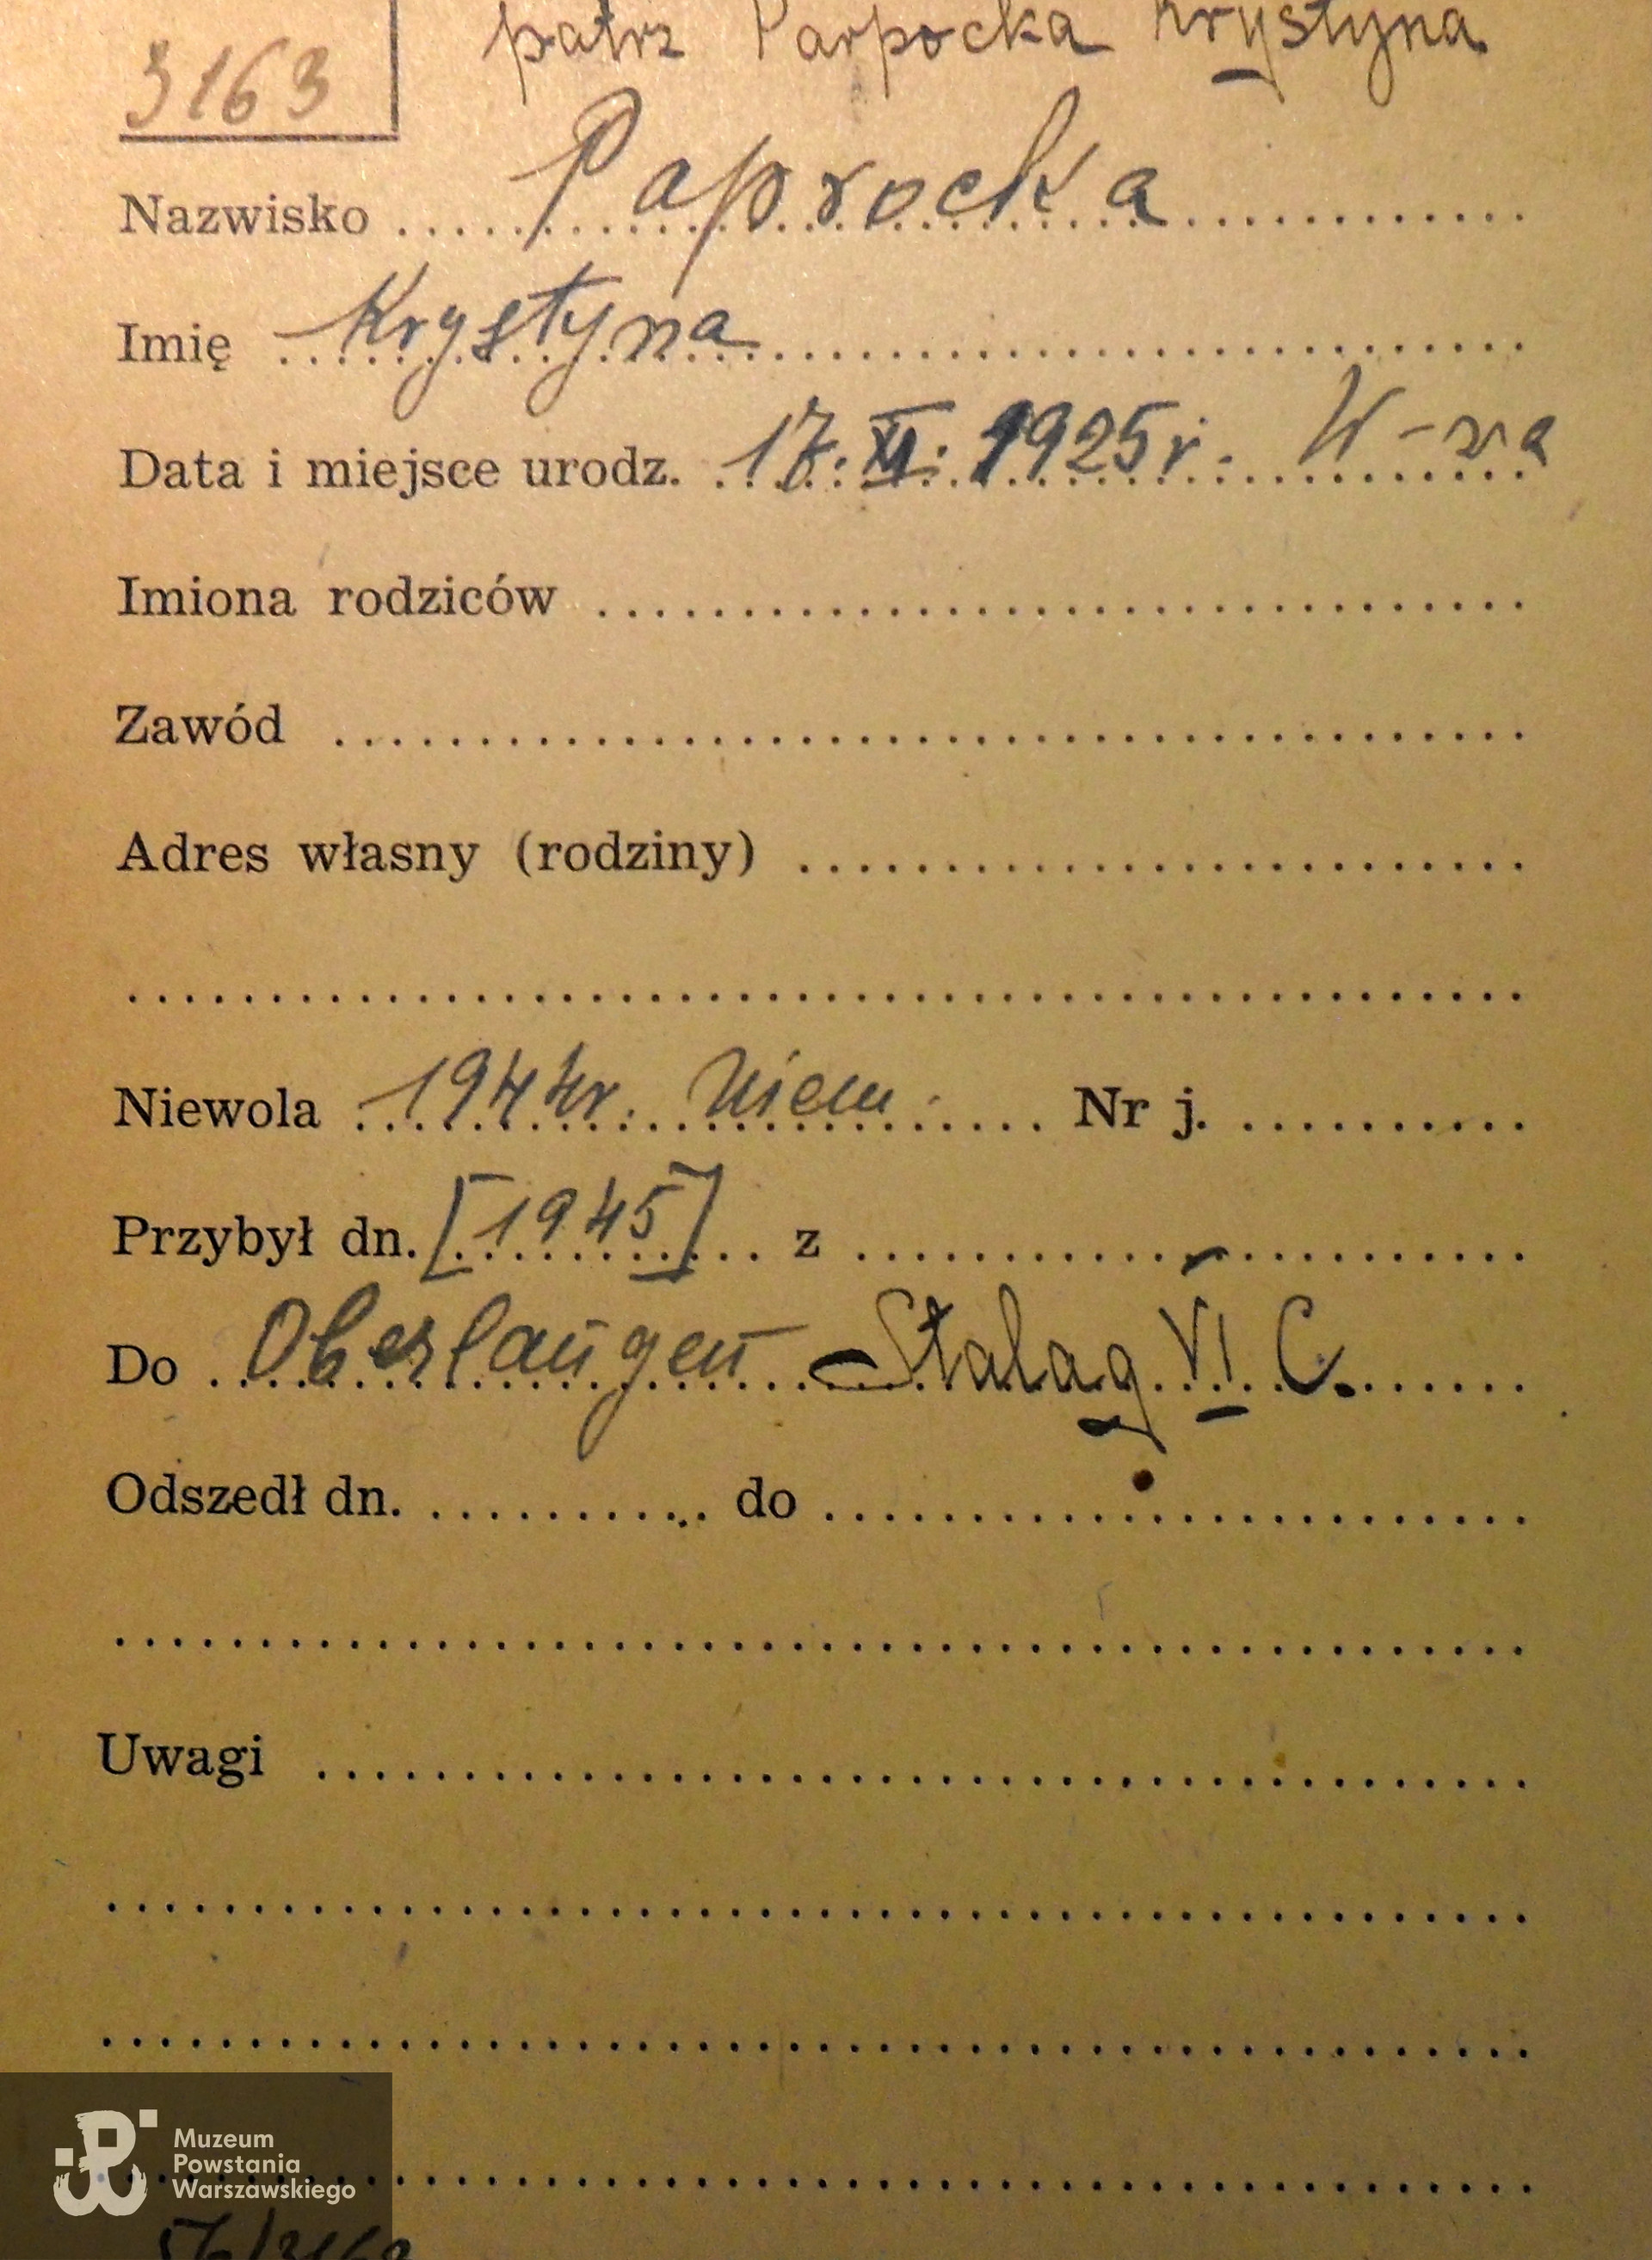 patrz Parpocka Krystyna
3163
Nazwisko Paprocka
Imię Krystyna
Data i miejsce urodz. 17. XI. 1925 r. W-wa
Imiona rodziców
Zawód
Adres własny (rodziny)
Niewola 1944r. Niem. Nr j.
Przybył dn. [1945] z
Do Oberlangen – Stalag VI C.
Odszedł dn. do
Uwagi
Muzeum
Powstania
Warszawskiego